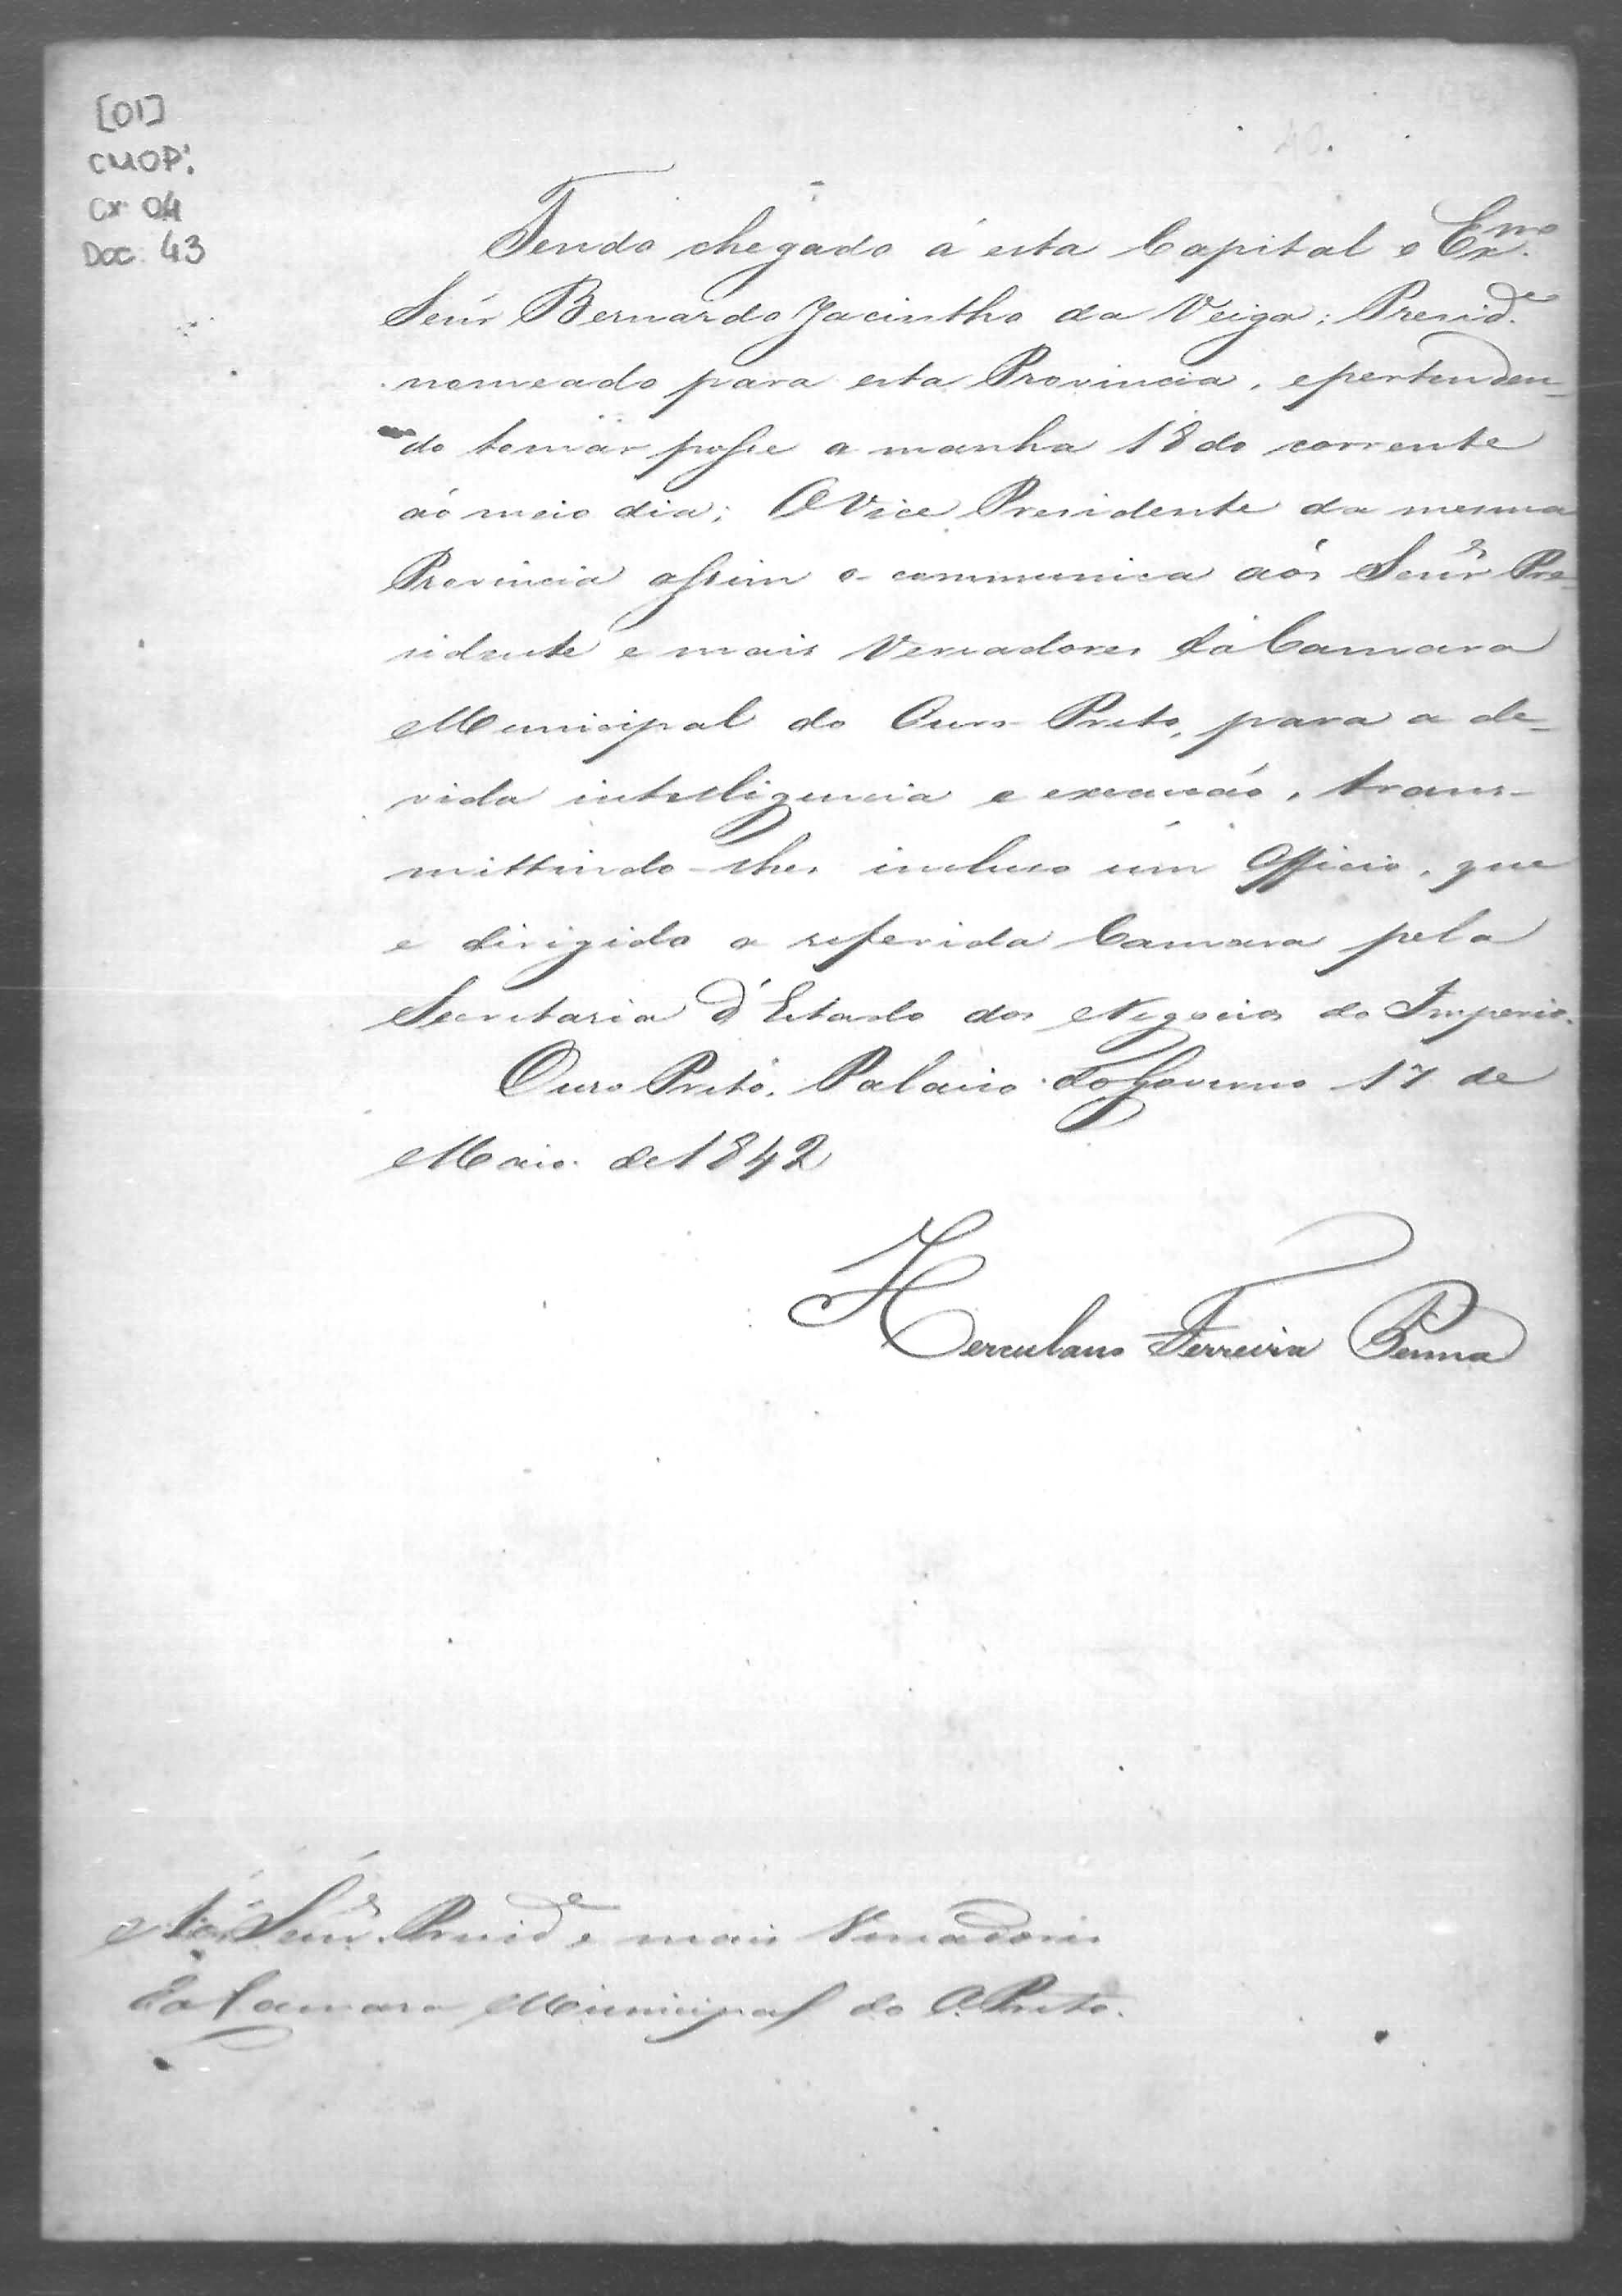 [01]
CMOP.
Cx 04
Doc. 43
40.
Tendo chegado á esta Capital o Ex.mo
Senr Bernardo Jacintho da Veiga; Presid.e
nomeado para esta Provincia, epertenden-
do tomar posse a manha 18 do corrente
áo meio dia; O Vice Presidente da mesma
Provincia assim o communica aós Senrs Pre-
sidente e mais Vereadores da Camara
Municipal do Ouro Preto, para a de-
vida intelligencia e execucáo, trans-
mittindo-lhes incluso um Officio, que
e dirigido a referida Camara pela
Secretaria d'Estado dos Negocios do Imperio.
Ouro Preto, Palacio do Governo 17 de
Maio de 1842
Herculano Ferreira Penna
Aós Senrs. Presid.e e mais Vereadores
da Camara Municipal do O. Preto.